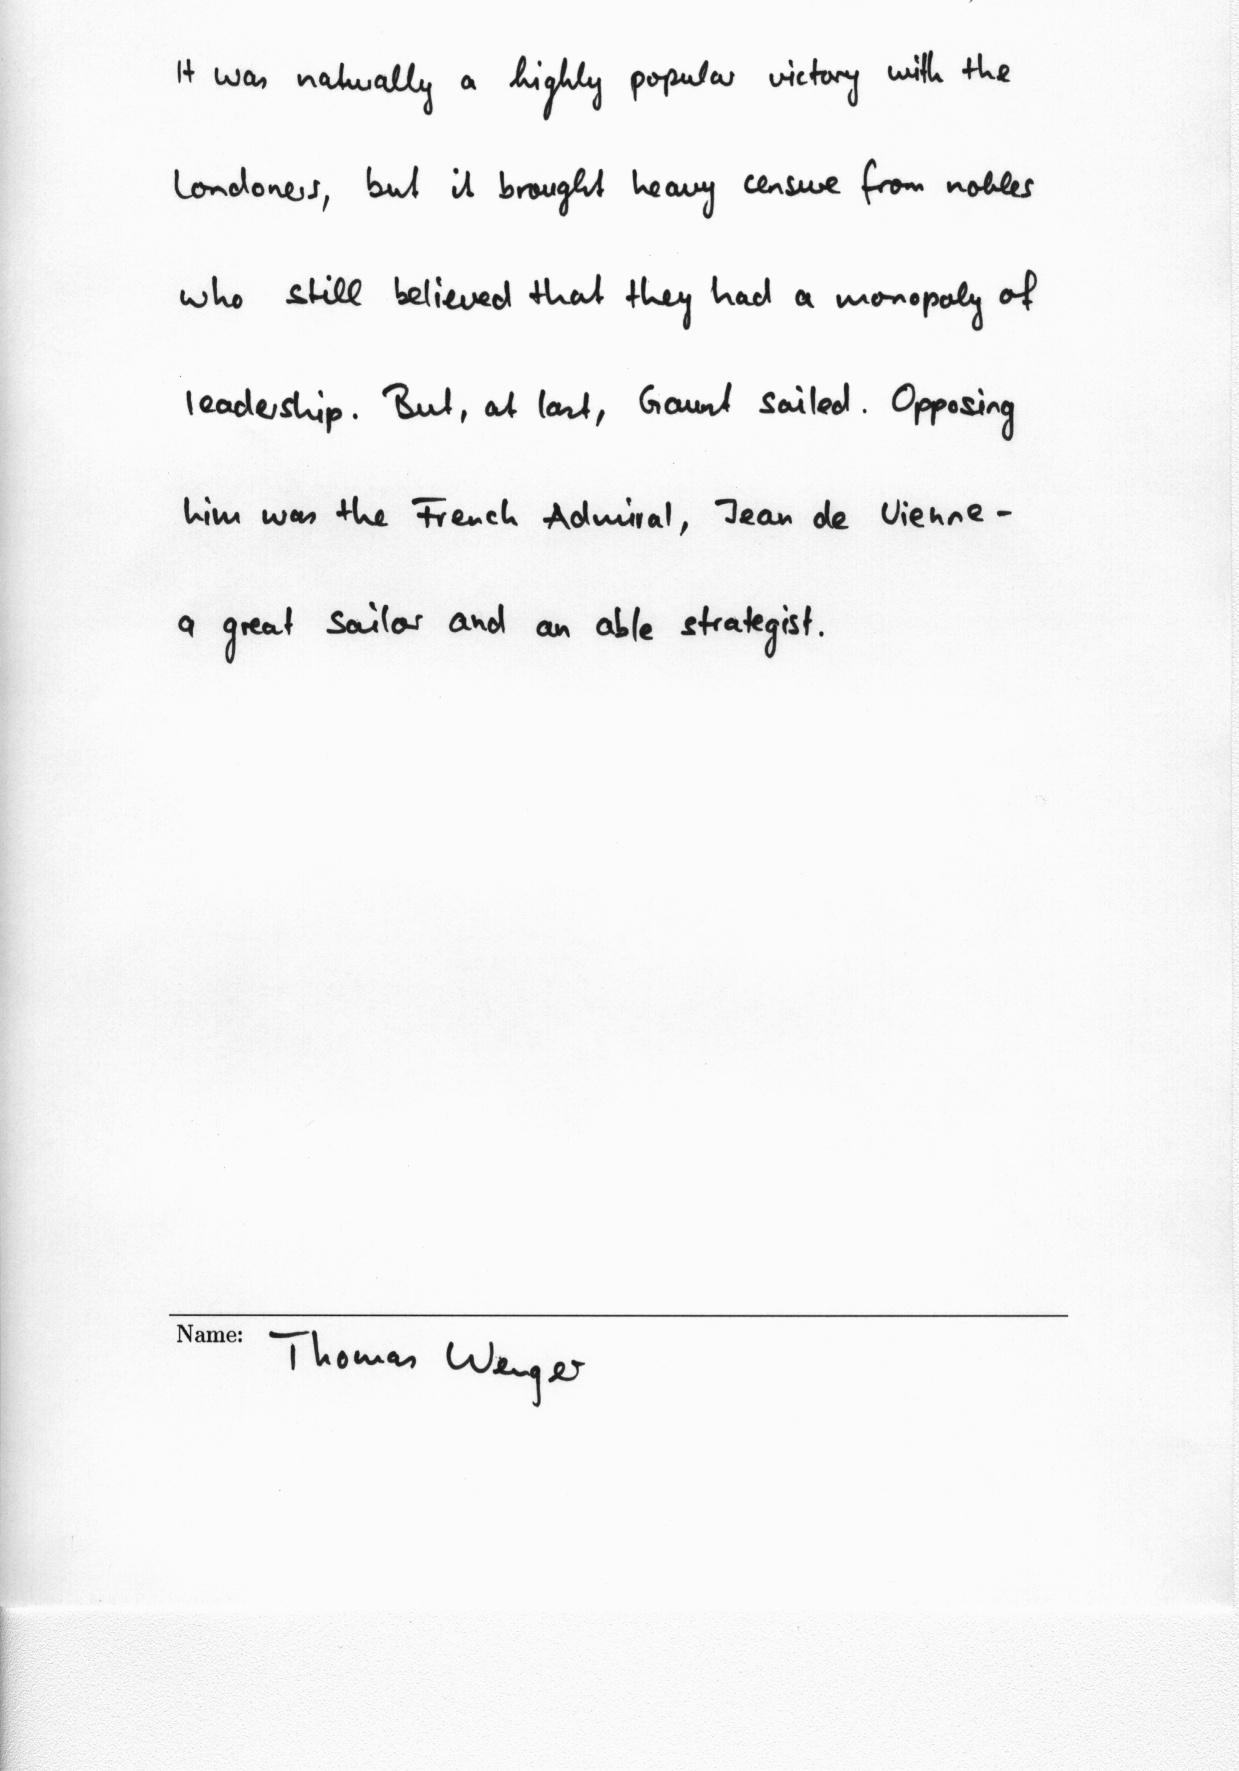 It was naturally a highly popular victory with the
Londoners, but it brought heavy censure from nobles
who still believed that they had a monopoly of
leadership. But, at last, Gaunt sailed. Opposing
him was the French Admiral, Jean de Vienne -
a great sailor and an able strategist.
Name: Thomas Wenger